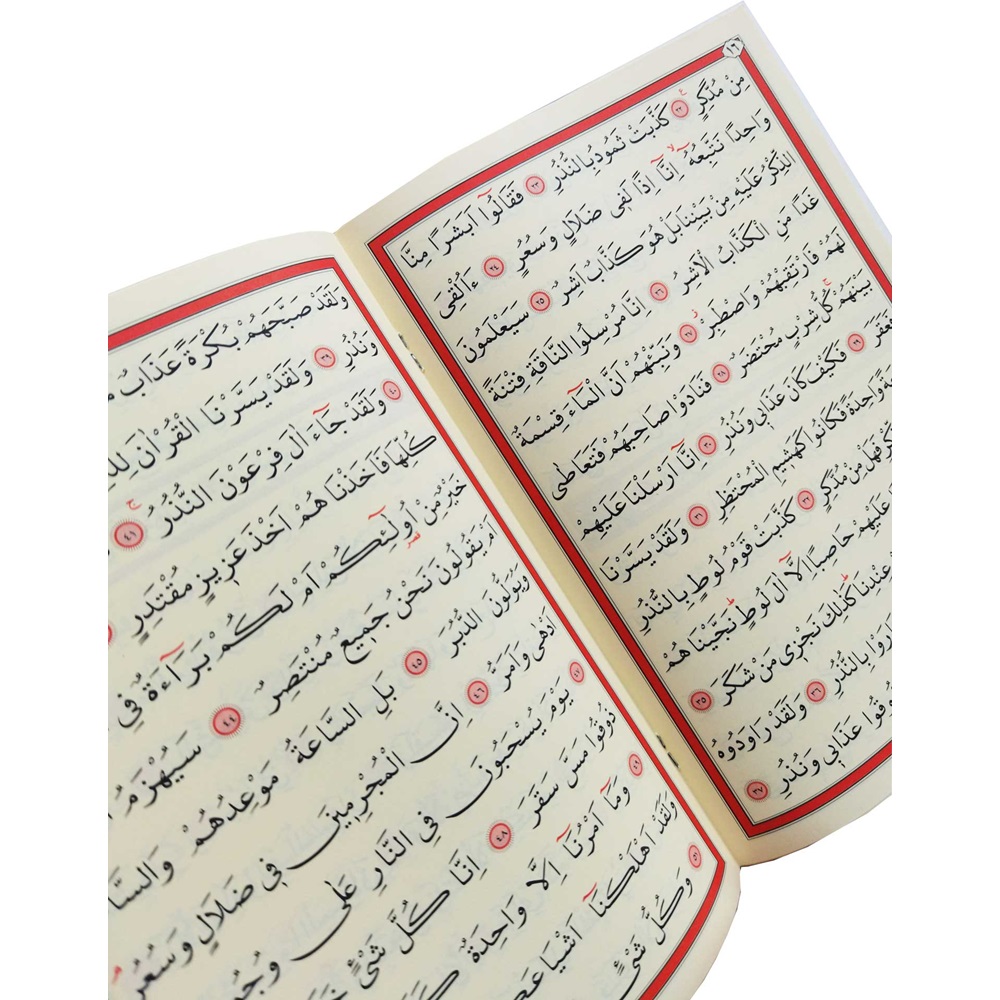 ١٦
مِنْ مُدَّكِرٍ ٢٢ كَذَّبَتْ ثَمُودُ بِالنُّذُرِ ٢٣ فَقَالُٓوا اَبَشَرًا مِنَّا
وَاحِدًا نَتَّبِعُهُٓ اِنَّٓا اِذًا لَفٖى ضَلَالٍ وَسُعُرٍ ٢٤ ءَاُلْقِىَ
الذِّكْرُ عَلَيْهِ مِنْ بَيْنِنَا بَلْ هُوَ كَذَّابٌ اَشِرٌ ٢٥ سَيَعْلَمُونَ
غَدًا مَنِ الْكَذَّابُ الْاَشِرُ ٢٦ اِنَّا مُرْسِلُوا النَّاقَةِ فِتْنَةً
لَهُمْ فَارْتَقِبْهُمْ وَاصْطَبِرْ ٢٧ وَنَبِّئْهُمْ اَنَّ الْمَٓاءَ قِسْمَةٌ
بَيْنَهُمْ كُلُّ شِرْبٍ مُحْتَضَرٌ ٢٨ فَنَادَوْا صَاحِبَهُمْ فَتَعَاطٰى
فَعَقَرَ ٢٩ فَكَيْفَ كَانَ عَذَابٖى وَنُذُرِ ٣٠ اِنَّٓا اَرْسَلْنَا عَلَيْهِمْ
وَاحِدَةً فَكَانُوا كَهَشٖيمِ الْمُحْتَظِرِ ٣١ وَلَقَدْ يَسَّرْنَا
فَهَلْ مِنْ مُدَّكِرٍ ٣٢ كَذَّبَتْ قَوْمُ لُوطٍ بِالنُّذُرِ
عَلَيْهِمْ حَاصِبًا اِلَّٓا اٰلَ لُوطٍ نَجَّيْنَاهُمْ
عِنْدِنَا كَذٰلِكَ نَجْزٖى مَنْ شَكَرَ ٣٥
بِالنُّذُرِ ٣٦ وَلَقَدْ رَاوَدُوهُ
عَذَابٖى وَنُذُرِ ٣٧
وَلَقَدْ صَبَّحَهُمْ بُكْرَةً عَذَابٌ
وَنُذُرِ ٣٩ وَلَقَدْ يَسَّرْنَا الْقُرْاٰنَ
٤٠ وَلَقَدْ جَٓاءَ اٰلَ فِرْعَوْنَ النُّذُرُ ٤١
كُلِّهَا فَاَخَذْنَاهُمْ اَخْذَ عَزٖيزٍ مُقْتَدِرٍ
خَيْرٌ مِنْ اُولٰٓئِكُمْ اَمْ لَكُمْ بَرَٓاءَةٌ فِى
اَمْ يَقُولُونَ نَحْنُ جَمٖيعٌ مُنْتَصِرٌ ٤٤ سَيُهْزَمُ
وَيُوَلُّونَ الدُّبُرَ ٤٥ بَلِ السَّاعَةُ مَوْعِدُهُمْ
اَدْهٰى وَاَمَرُّ ٤٦ اِنَّ الْمُجْرِمٖينَ فٖى ضَلَالٍ وَسُعُرٍ
٤٧ يَوْمَ يُسْحَبُونَ فِى النَّارِ عَلٰى
ذُوقُوا مَسَّ سَقَرَ ٤٨ اِنَّا كُلَّ شَیْءٍ
٤٩ وَمَٓا اَمْرُنَٓا اِلَّا وَاحِدَةٌ
وَلَقَدْ اَهْلَكْنَٓا
٥١ وَكُلُّ شَیْءٍ